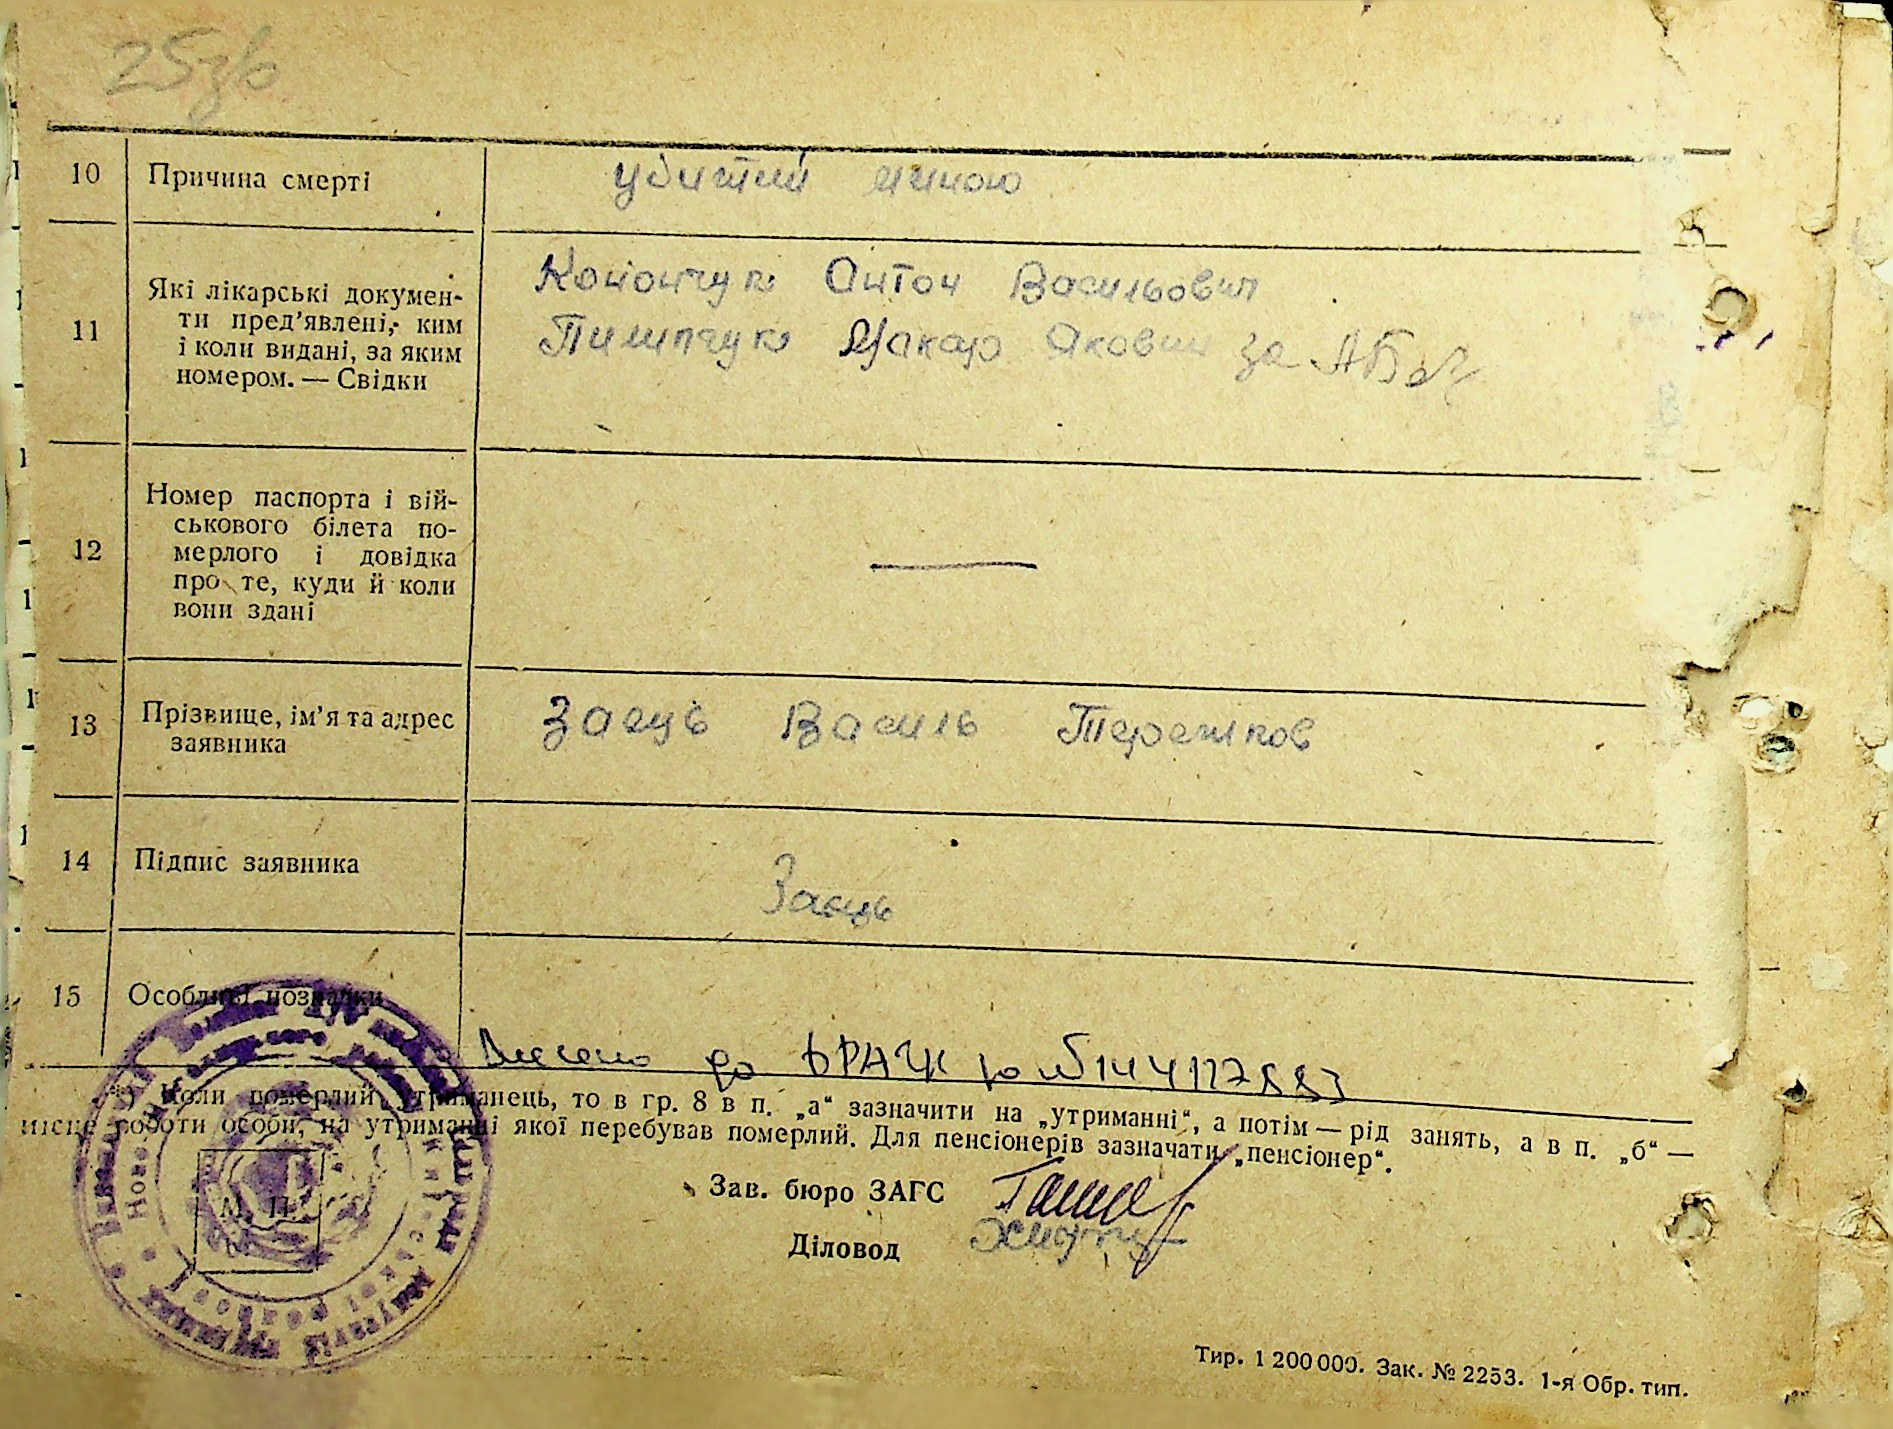 25зв
10 Причина смерті убитий міною
11 Які лікарські докумен-
ти пред'явлені, ким
і коли видані, за яким
номером. — Свідки
Конончук Антон Васильович
Пилипчук Макар Якович за
12 Номер паспорта і вій-
ськового білета по-
мерлого і довідка
про те, куди й коли
вони здані
—
13 Прізвище, ім'я та адрес
заявника
Заєць Василь
14 Підпис заявника Заєць
15 Особливі позначки
Внесено до ДРАЦС
*) Коли померлий утриманець, то в гр. 8 в п. „а“ зазначити на „утриманні“, а потім — рід занять, а в п. „б“ —
місце роботи особи, на утриманні якої перебував померлий. Для пенсіонерів зазначати „пенсіонер“.
Зав. бюро ЗАГС
Діловод
М. П.
Тир. 1 200 000. Зак. № 2253. 1-я Обр. тип.